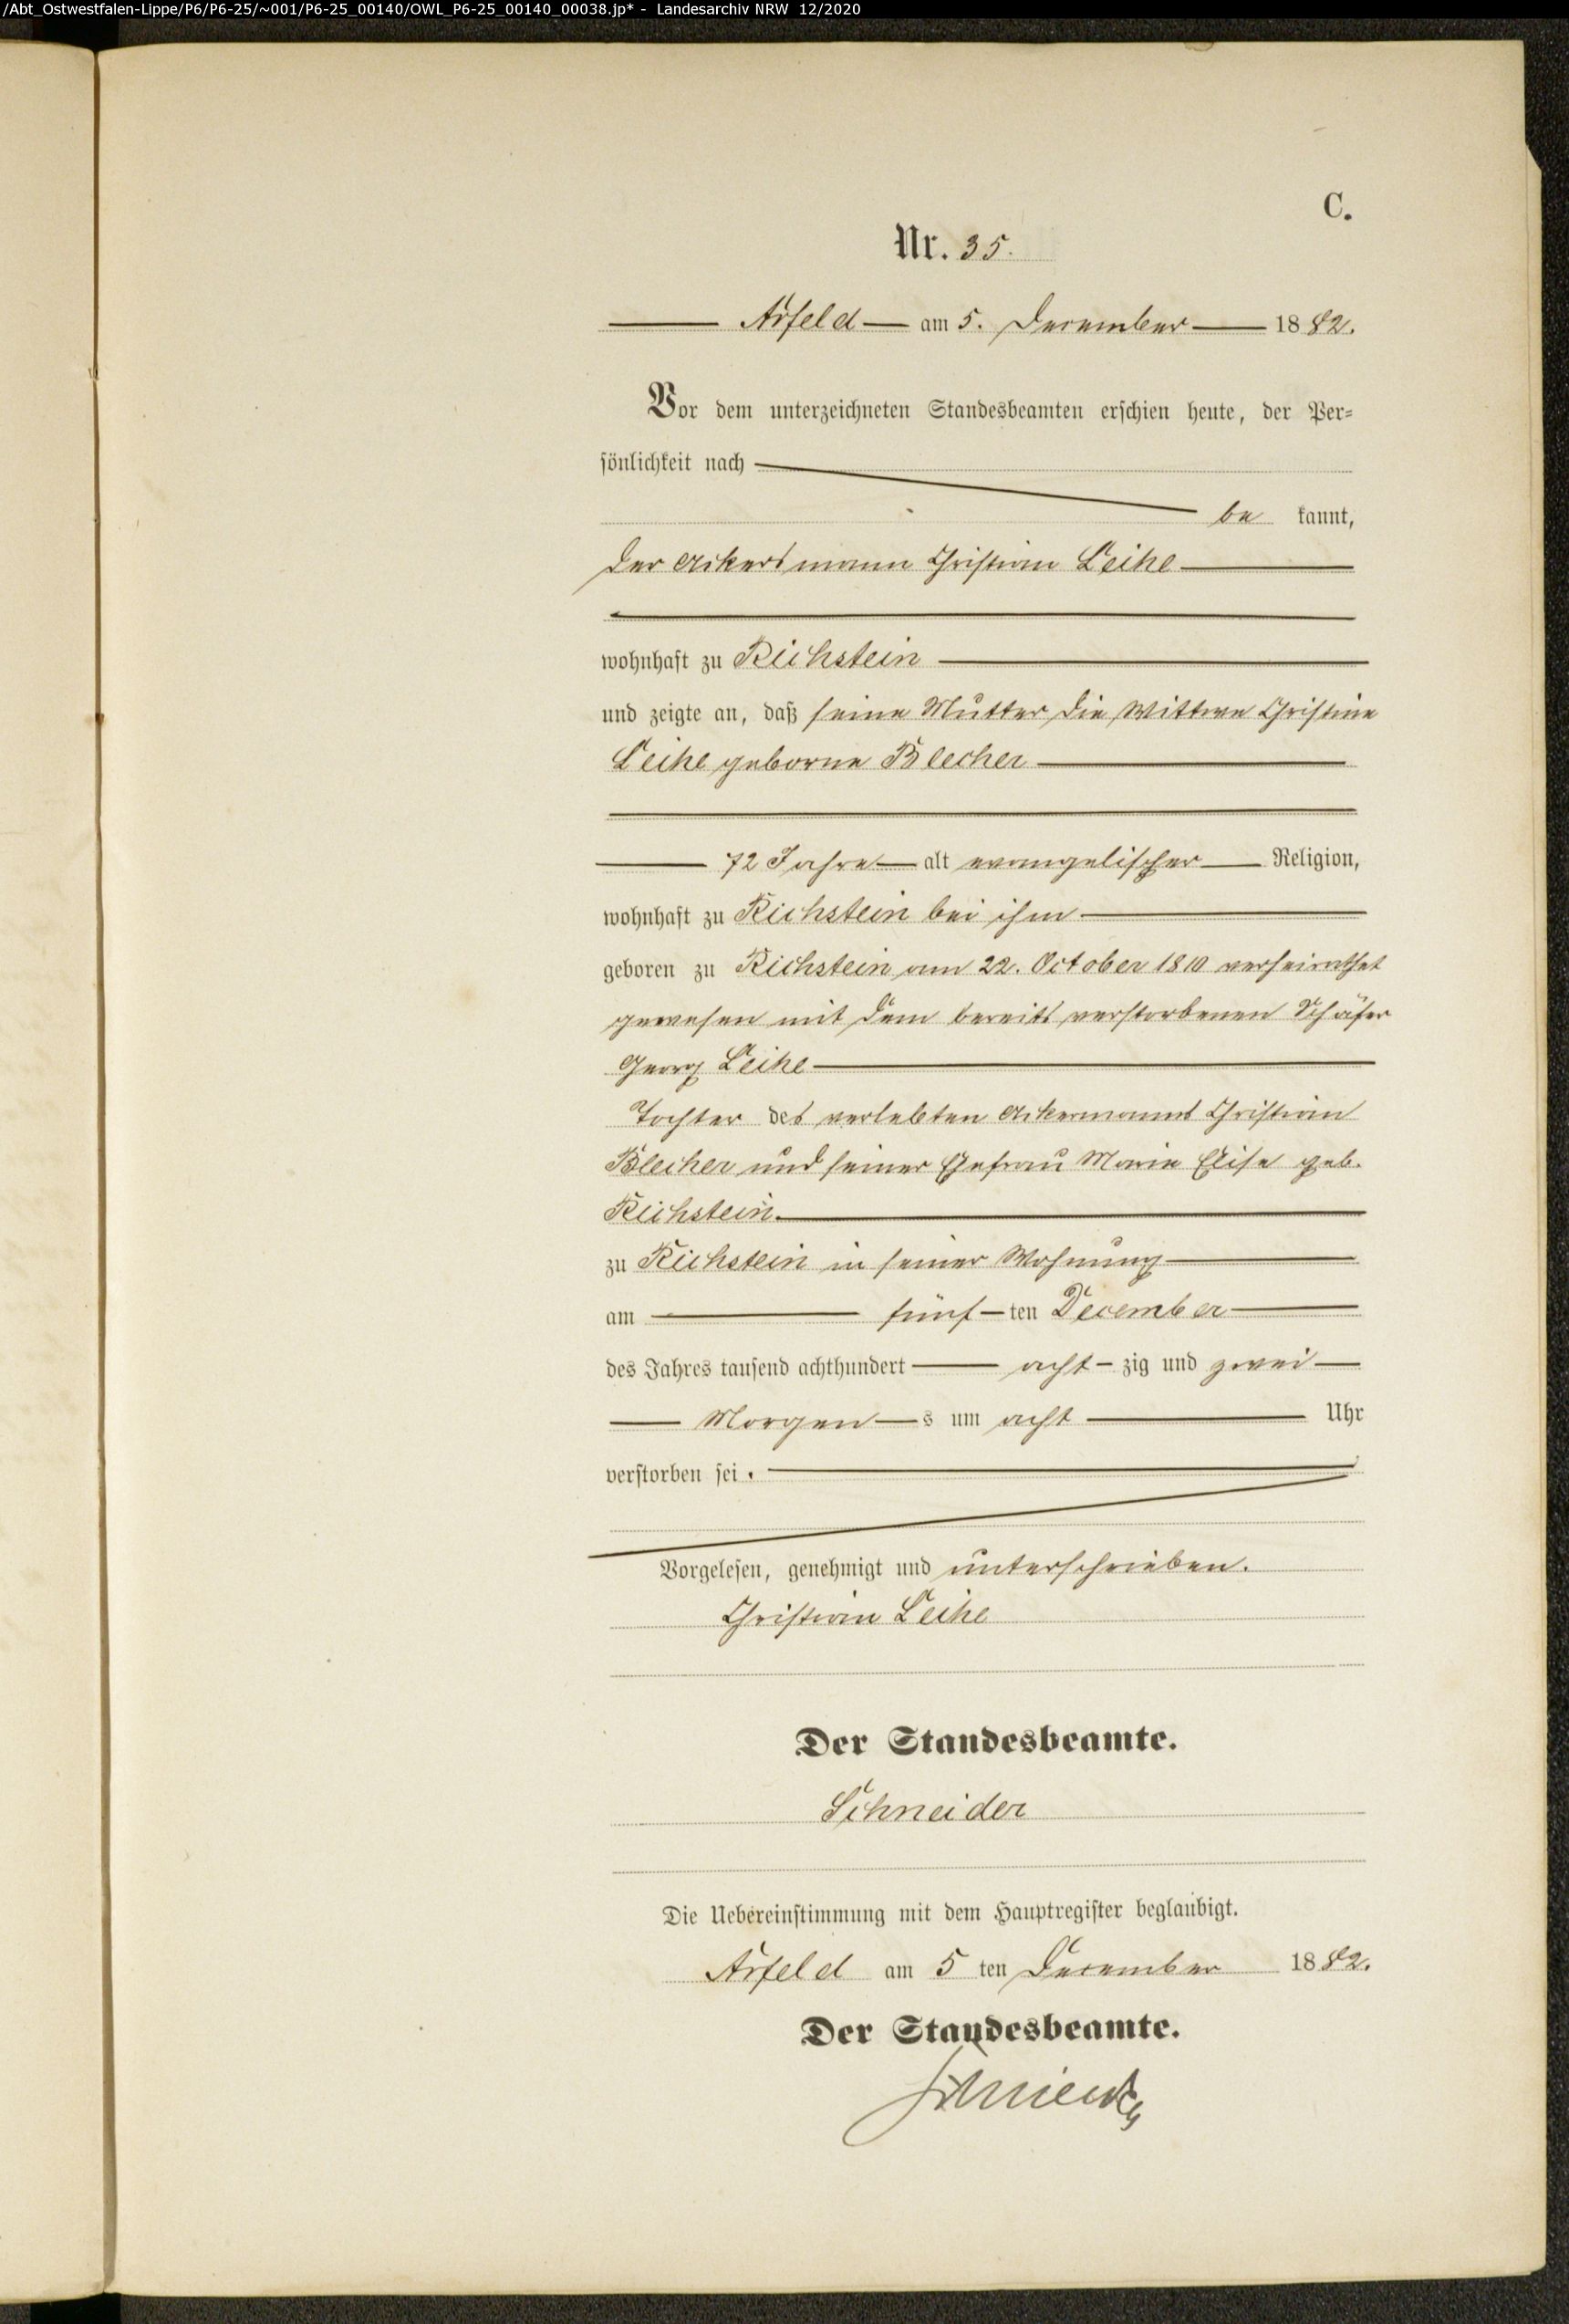 /Abt_Ostwestfalen-Lippe/P6/P6-25/~001/P6-25_00140/OWL_P6-25_00140_00038.jp* - Landesarchiv NRW 12/2020
C.
Nr. 35.
Arfeld am 5. December 1882.
Vor dem unterzeichneten Standesbeamten erschien heute, der Per-
sönlichkeit nach
be kannt,
der Ackersmann Christian Leike
wohnhaft zu Richstein
und zeigte an, daß seine Mutter die Wittwe Christine
Leike geborne Blecher
72 Jahre alt evangelischer Religion,
wohnhaft zu Richstein bei ihm
geboren zu Richstein am 22. October 1810 verheirathet
gewesen mit dem bereits verstorbenen Schäfer
Georg Leike
Tochter des verlebten Ackermanns Christian
Blecher und seiner Ehefrau Marie Elise geb.
Richstein.
zu Richstein in seiner Wohnung
am fünf ten December
des Jahres tausend achthundert acht zig und zwei
Morgen s um acht Uhr
verstorben sei.
Vorgelesen, genehmigt und unterschrieben.
Christian Leike
Der Standesbeamte.
Schneider
Die Uebereinstimmung mit dem Hauptregister beglaubigt.
Arfeld am 5 ten December 1882.
Der Standesbeamte.
Schneider